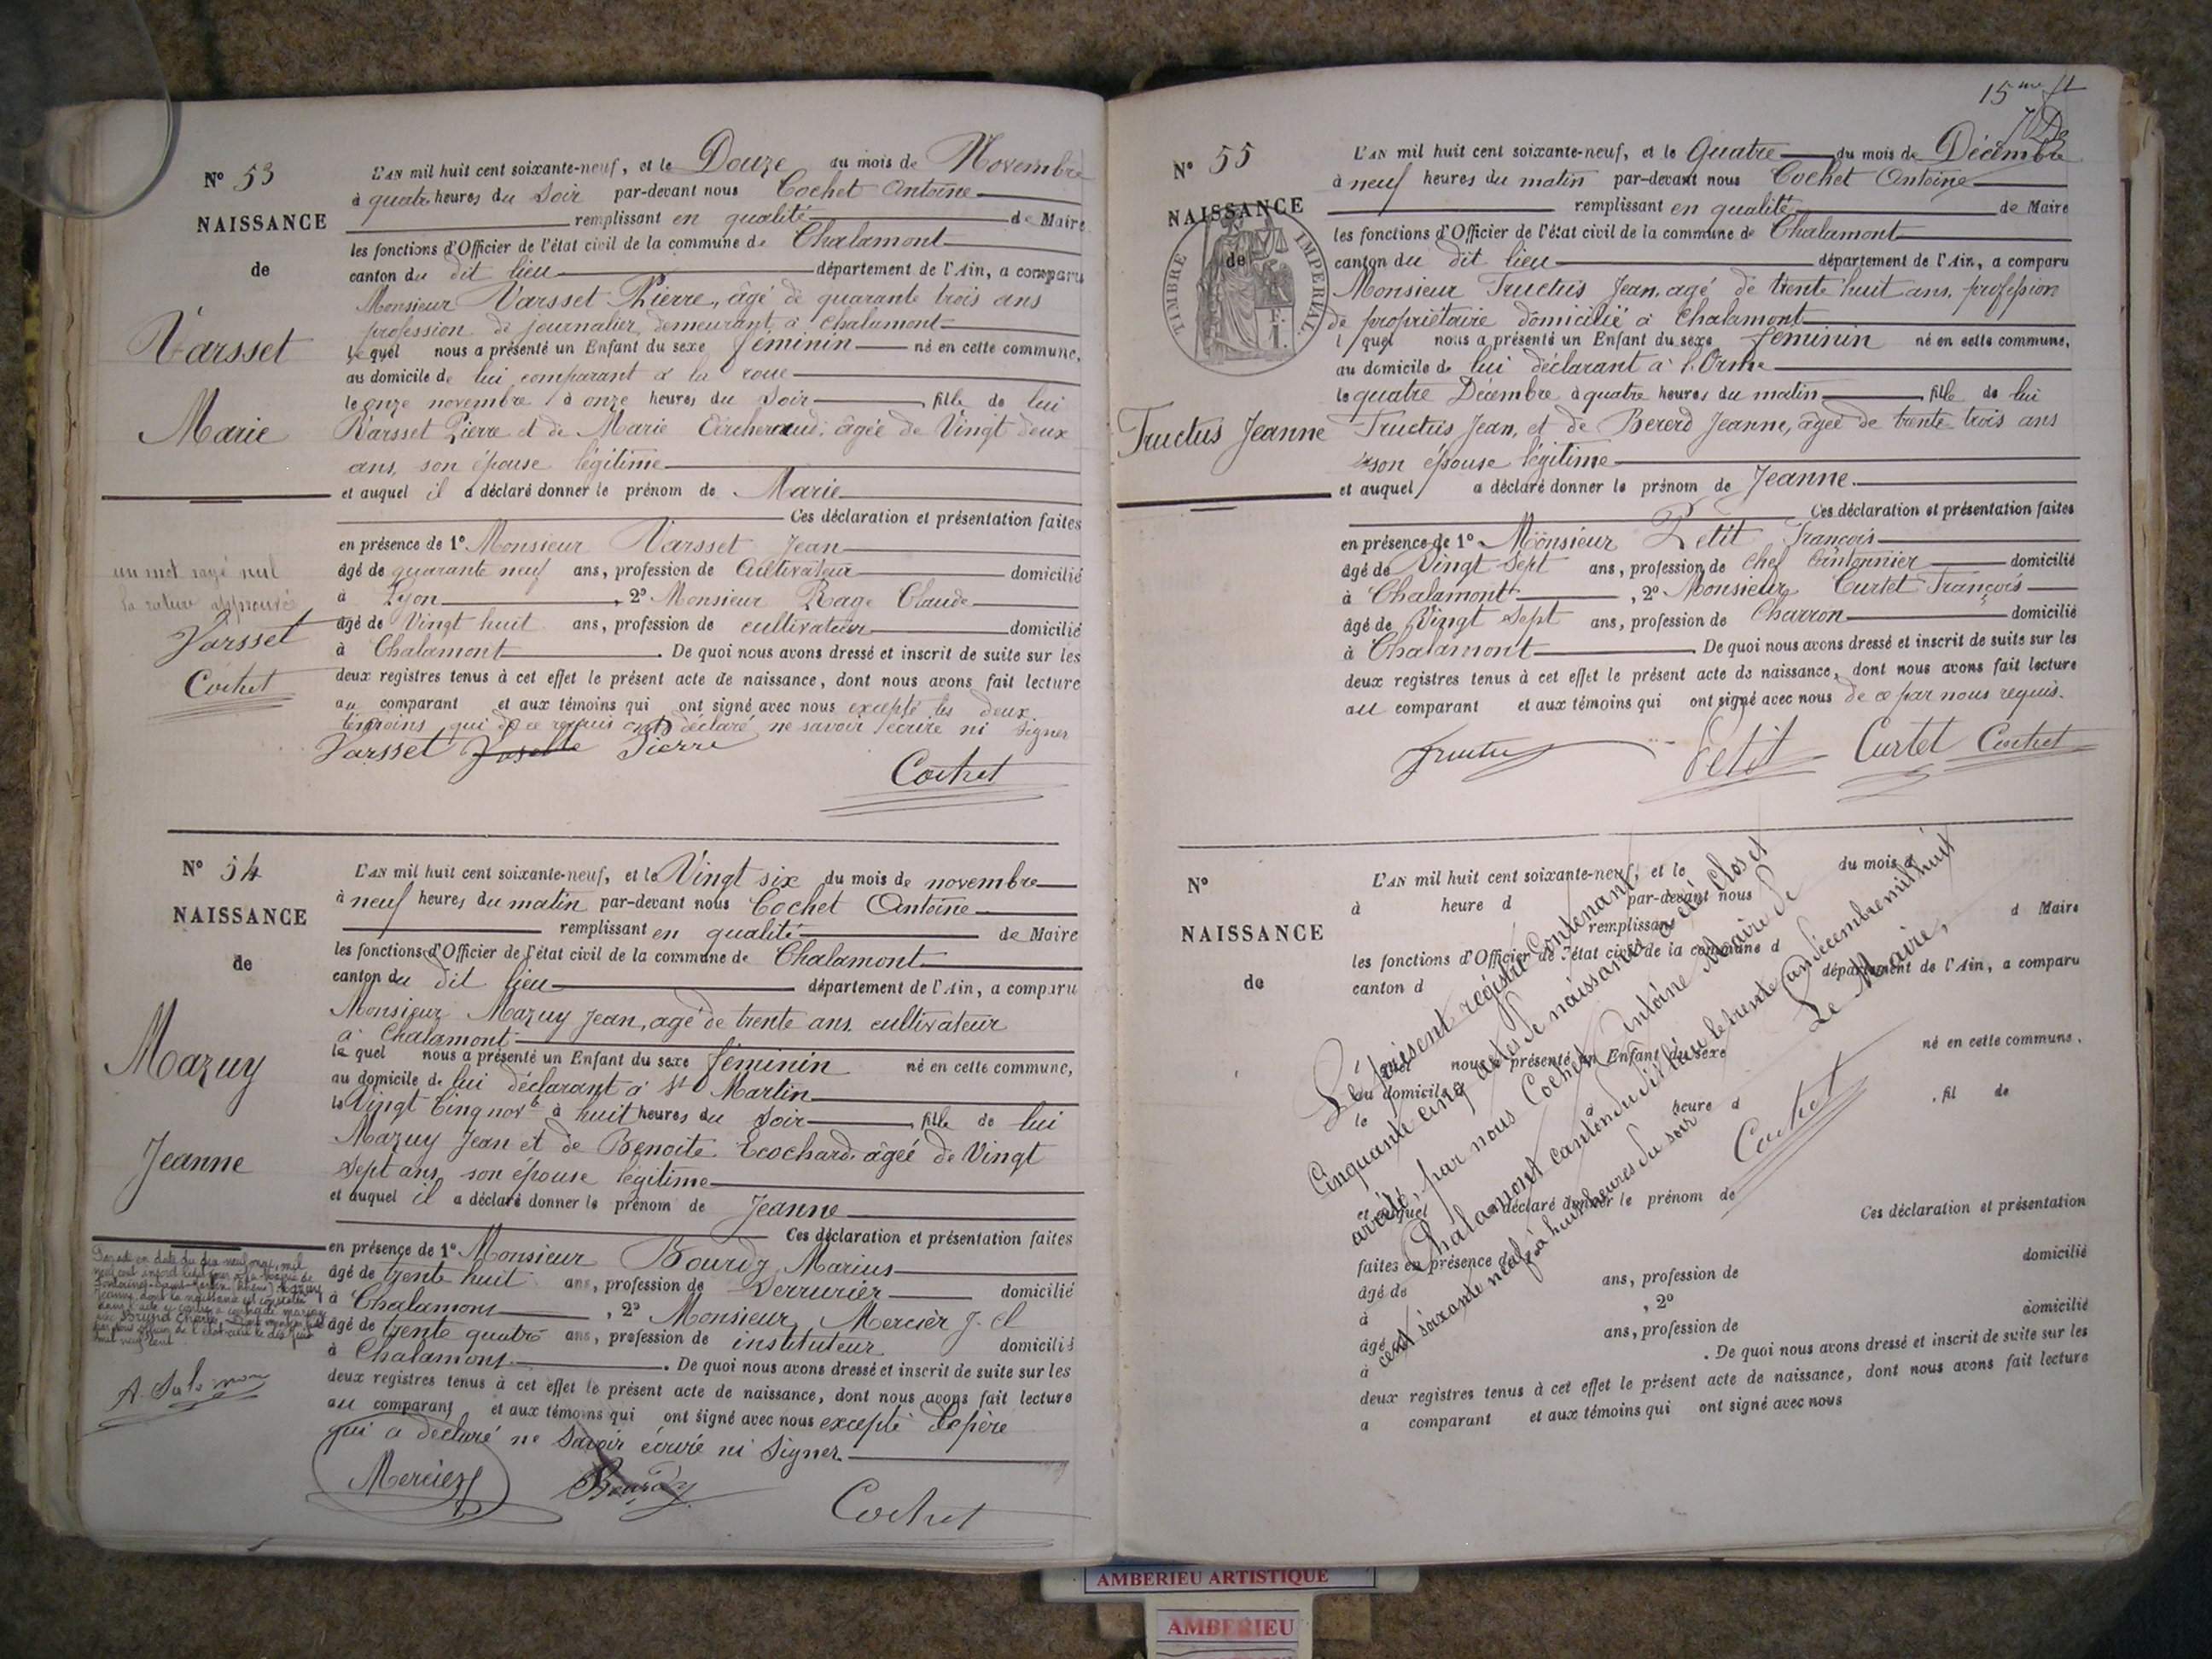 N° 53
NAISSANCE
de
Varsset
Marie
un mot rayé nul
la rature approuvée
Varsset
Cochet
L'AN mil huit cent soixante-neuf, et le Douze du mois de Novembre
à quatre heures du Soir par-devant nous Cochet Antoine
remplissant en qualité de Maire
les fonctions d'Officier de l'état civil de la commune de Chalamont
canton du dit lieu département de l'Ain, a comparu
Monsieur Varsset Pierre, âgé de quarante trois ans
profession de journalier, demeurant à Chalamont
lequel nous a présenté un Enfant du sexe féminin né en cette commune,
au domicile de lui comparant à la roue
le onze novembre à onze heures du Soir fille de lui
Varsset Pierre et de Marie âgée de Vingt deux
ans, son épouse légitime
et auquel il a déclaré donner le prénom de Marie
Ces déclaration et présentation faites
en présence de 1° Monsieur Varsset Jean
âgé de quarante neuf ans, profession de Cultivateur domicilié
à Lyon, 2° Monsieur Rage Claude
âgé de Vingt huit ans, profession de cultivateur domicilié
à Chalamont. De quoi nous avons dressé et inscrit de suite sur les
deux registres tenus à cet effet le présent acte de naissance, dont nous avons fait lecture
au comparant et aux témoins qui ont signé avec nous excepté les deux
témoins qui de ce requis ont déclaré ne savoir écrire ni signer
Varsset Pierre
Cochet
N° 54
NAISSANCE
de
Mazuy
Jeanne
A. Salomon
L'AN mil huit cent soixante-neuf, et le Vingt six du mois de novembre
à neuf heures du matin par-devant nous Cochet Antoine
remplissant en qualité de Maire
les fonctions d'Officier de l'état civil de la commune de Chalamont
canton du dit lieu département de l'Ain, a comparu
Monsieur Mazuy Jean, agé de trente ans cultivateur
à Chalamont
lequel nous a présenté un Enfant du sexe féminin né en cette commune,
au domicile de lui déclarant à St Martin
le Vingt Cinq novb à huit heures du Soir fille de lui
Mazuy Jean et de Benoite Ecochard âgée de Vingt
Sept ans, son épouse légitime
et auquel il a déclaré donner le prénom de Jeanne
Ces déclaration et présentation faites
en présence de 1° Monsieur Bourdy Marius
âgé de trente huit ans, profession de Serrurier domicilié
à Chalamont, 2° Monsieur Mercier J. Cl
âgé de trente quatre ans, profession de instituteur domicilié
à Chalamont. De quoi nous avons dressé et inscrit de suite sur les
deux registres tenus à cet effet le présent acte de naissance, dont nous avons fait lecture
au comparant et aux témoins qui ont signé avec nous excepté le père
qui a déclaré ne Savoir écrire ni Signer
Mercier Bourdy
Cochet
15me ft
N° 55
NAISSANCE
de
TIMBRE IMPERIAL
Tructus Jeanne
L'AN mil huit cent soixante-neuf, et le Quatre du mois de Décembre
à neuf heures du matin par-devant nous Cochet Antoine
remplissant en qualité de Maire
les fonctions d'Officier de l'état civil de la commune de Chalamont
canton du dit lieu département de l'Ain, a comparu
Monsieur Tructus Jean, agé de trente huit ans, profession
de propriétaire domicilié à Chalamont
l quel nous a présenté un Enfant du sexe féminin né en cette commune,
au domicile de lui déclarant à l'Orme
le quatre Décembre à quatre heures du matin fille de lui
Tructus Jean, et de Bererd Jeanne, agée de trente trois ans
son épouse légitime
et auquel a déclaré donner le prénom de Jeanne
Ces déclaration et présentation faites
en présence de 1° Monsieur Petit François
âgé de Vingt Sept ans, profession de chef Cantonnier domicilié
à Chalamont, 2° Monsieur Curtet François
âgé de Vingt Sept ans, profession de Charron domicilié
à Chalamont. De quoi nous avons dressé et inscrit de suite sur les
deux registres tenus à cet effet le présent acte de naissance, dont nous avons fait lecture
au comparant et aux témoins qui ont signé avec nous de ce par nous requis.
Tructus Petit Curtet Cochet
N°
NAISSANCE
de
L'AN mil huit cent soixante-neuf, et le du mois d
à heure d par-devant nous
remplissant d Maire
les fonctions d'Officier de l'état civil de la commune d
canton d département de l'Ain, a comparu
l quel nous a présenté un Enfant du sexe né en cette commune,
au domicile d
le à heure d , fil de
et auquel a déclaré donner le prénom de
Ces déclaration et présentation
faites en présence de domicilié
âgé de ans, profession de
à , 2°
âgé ans, profession de domicilié
à . De quoi nous avons dressé et inscrit de suite sur les
deux registres tenus à cet effet le présent acte de naissance, dont nous avons fait lecture
a comparant et aux témoins qui ont signé avec nous
Le présent registre contenant
Cinquante cinq actes de naissances a été clos et
arrêté, par nous Cochet Antoine Maire de
Chalamont canton du dit lieu le trente un décembre mil huit
cent soixante neuf, à huit heures du soir
Le Maire,
Cochet
AMBERIEU ARTISTIQUE
AMBERIEU